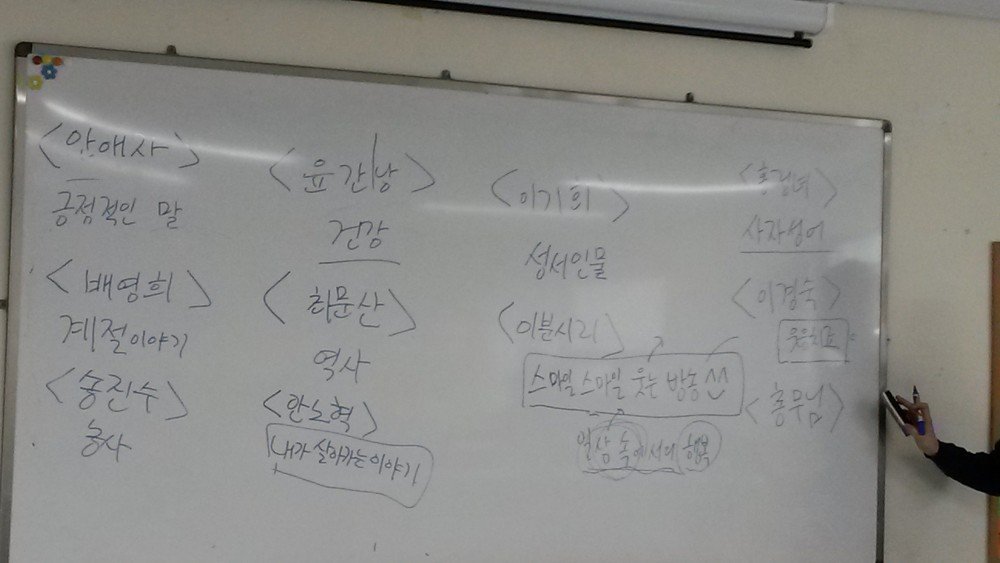 <안애사>
긍정적인 말
<배영희>
계절이야기
<송진수>
농사
<윤간낭>
건강
<최문산>
역사
<안노혁>
내가 살아가는이야기
<이기희>
성서인물
<이분시리>
스마일 스마일 웃는 방송^^
일상 속에서의 행복
사자성어
<이경숙>
웃음치료
<총무님>